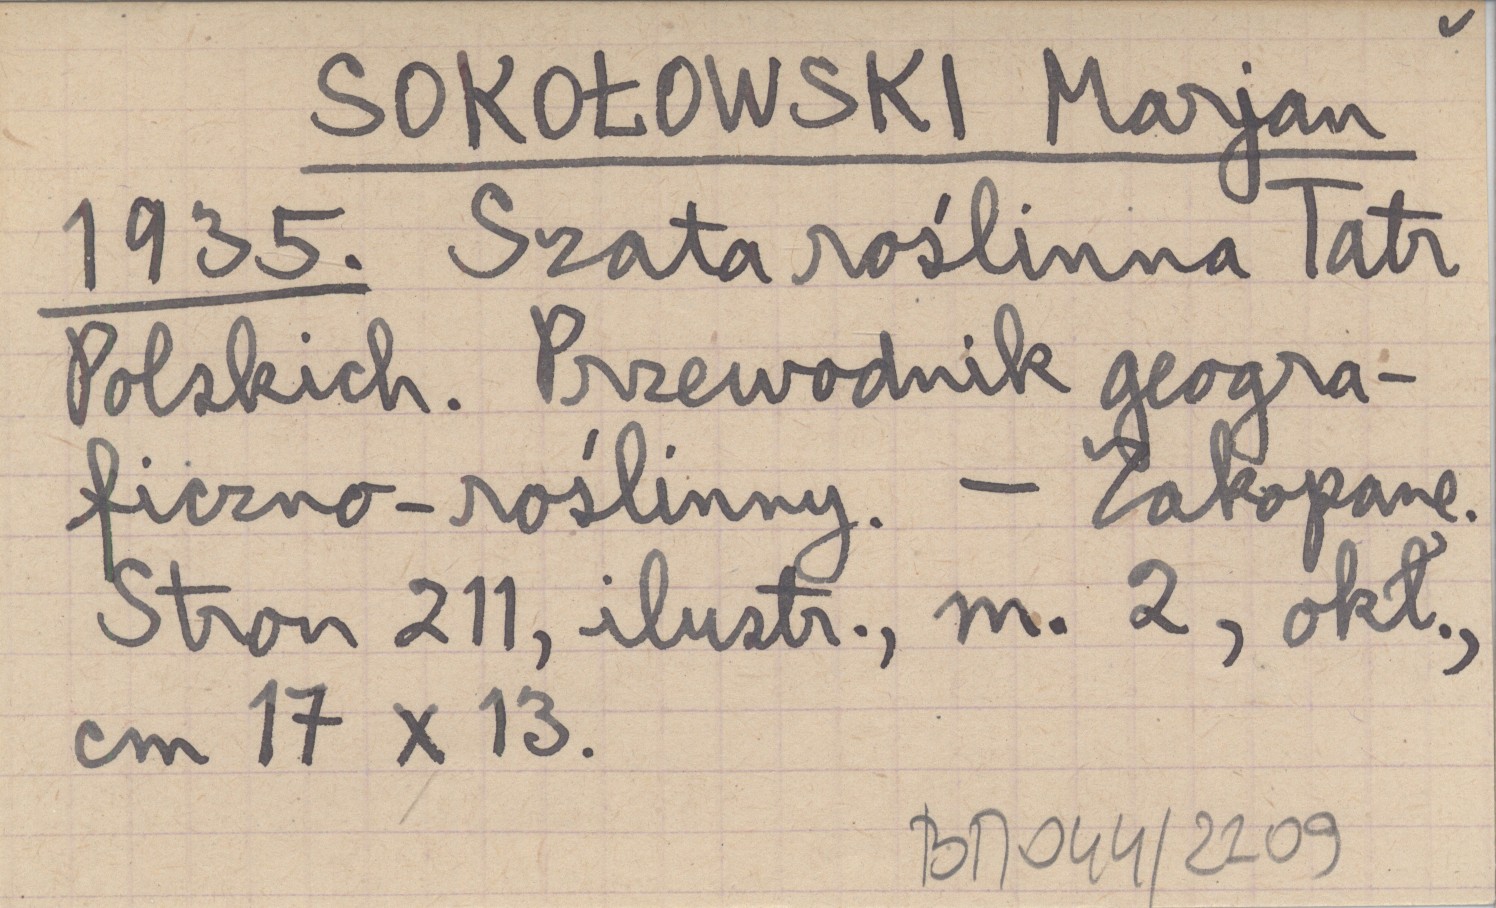 SOKOŁOWSKI Marjan
1935. Szata roślinna Tatr
Polskich. Przewodnik geogra-
ficzno-roślinny. — Zakopane.
Stron 211, ilustr., m. 2, okł.,
cm 17 x 13.
ВП 044/2209